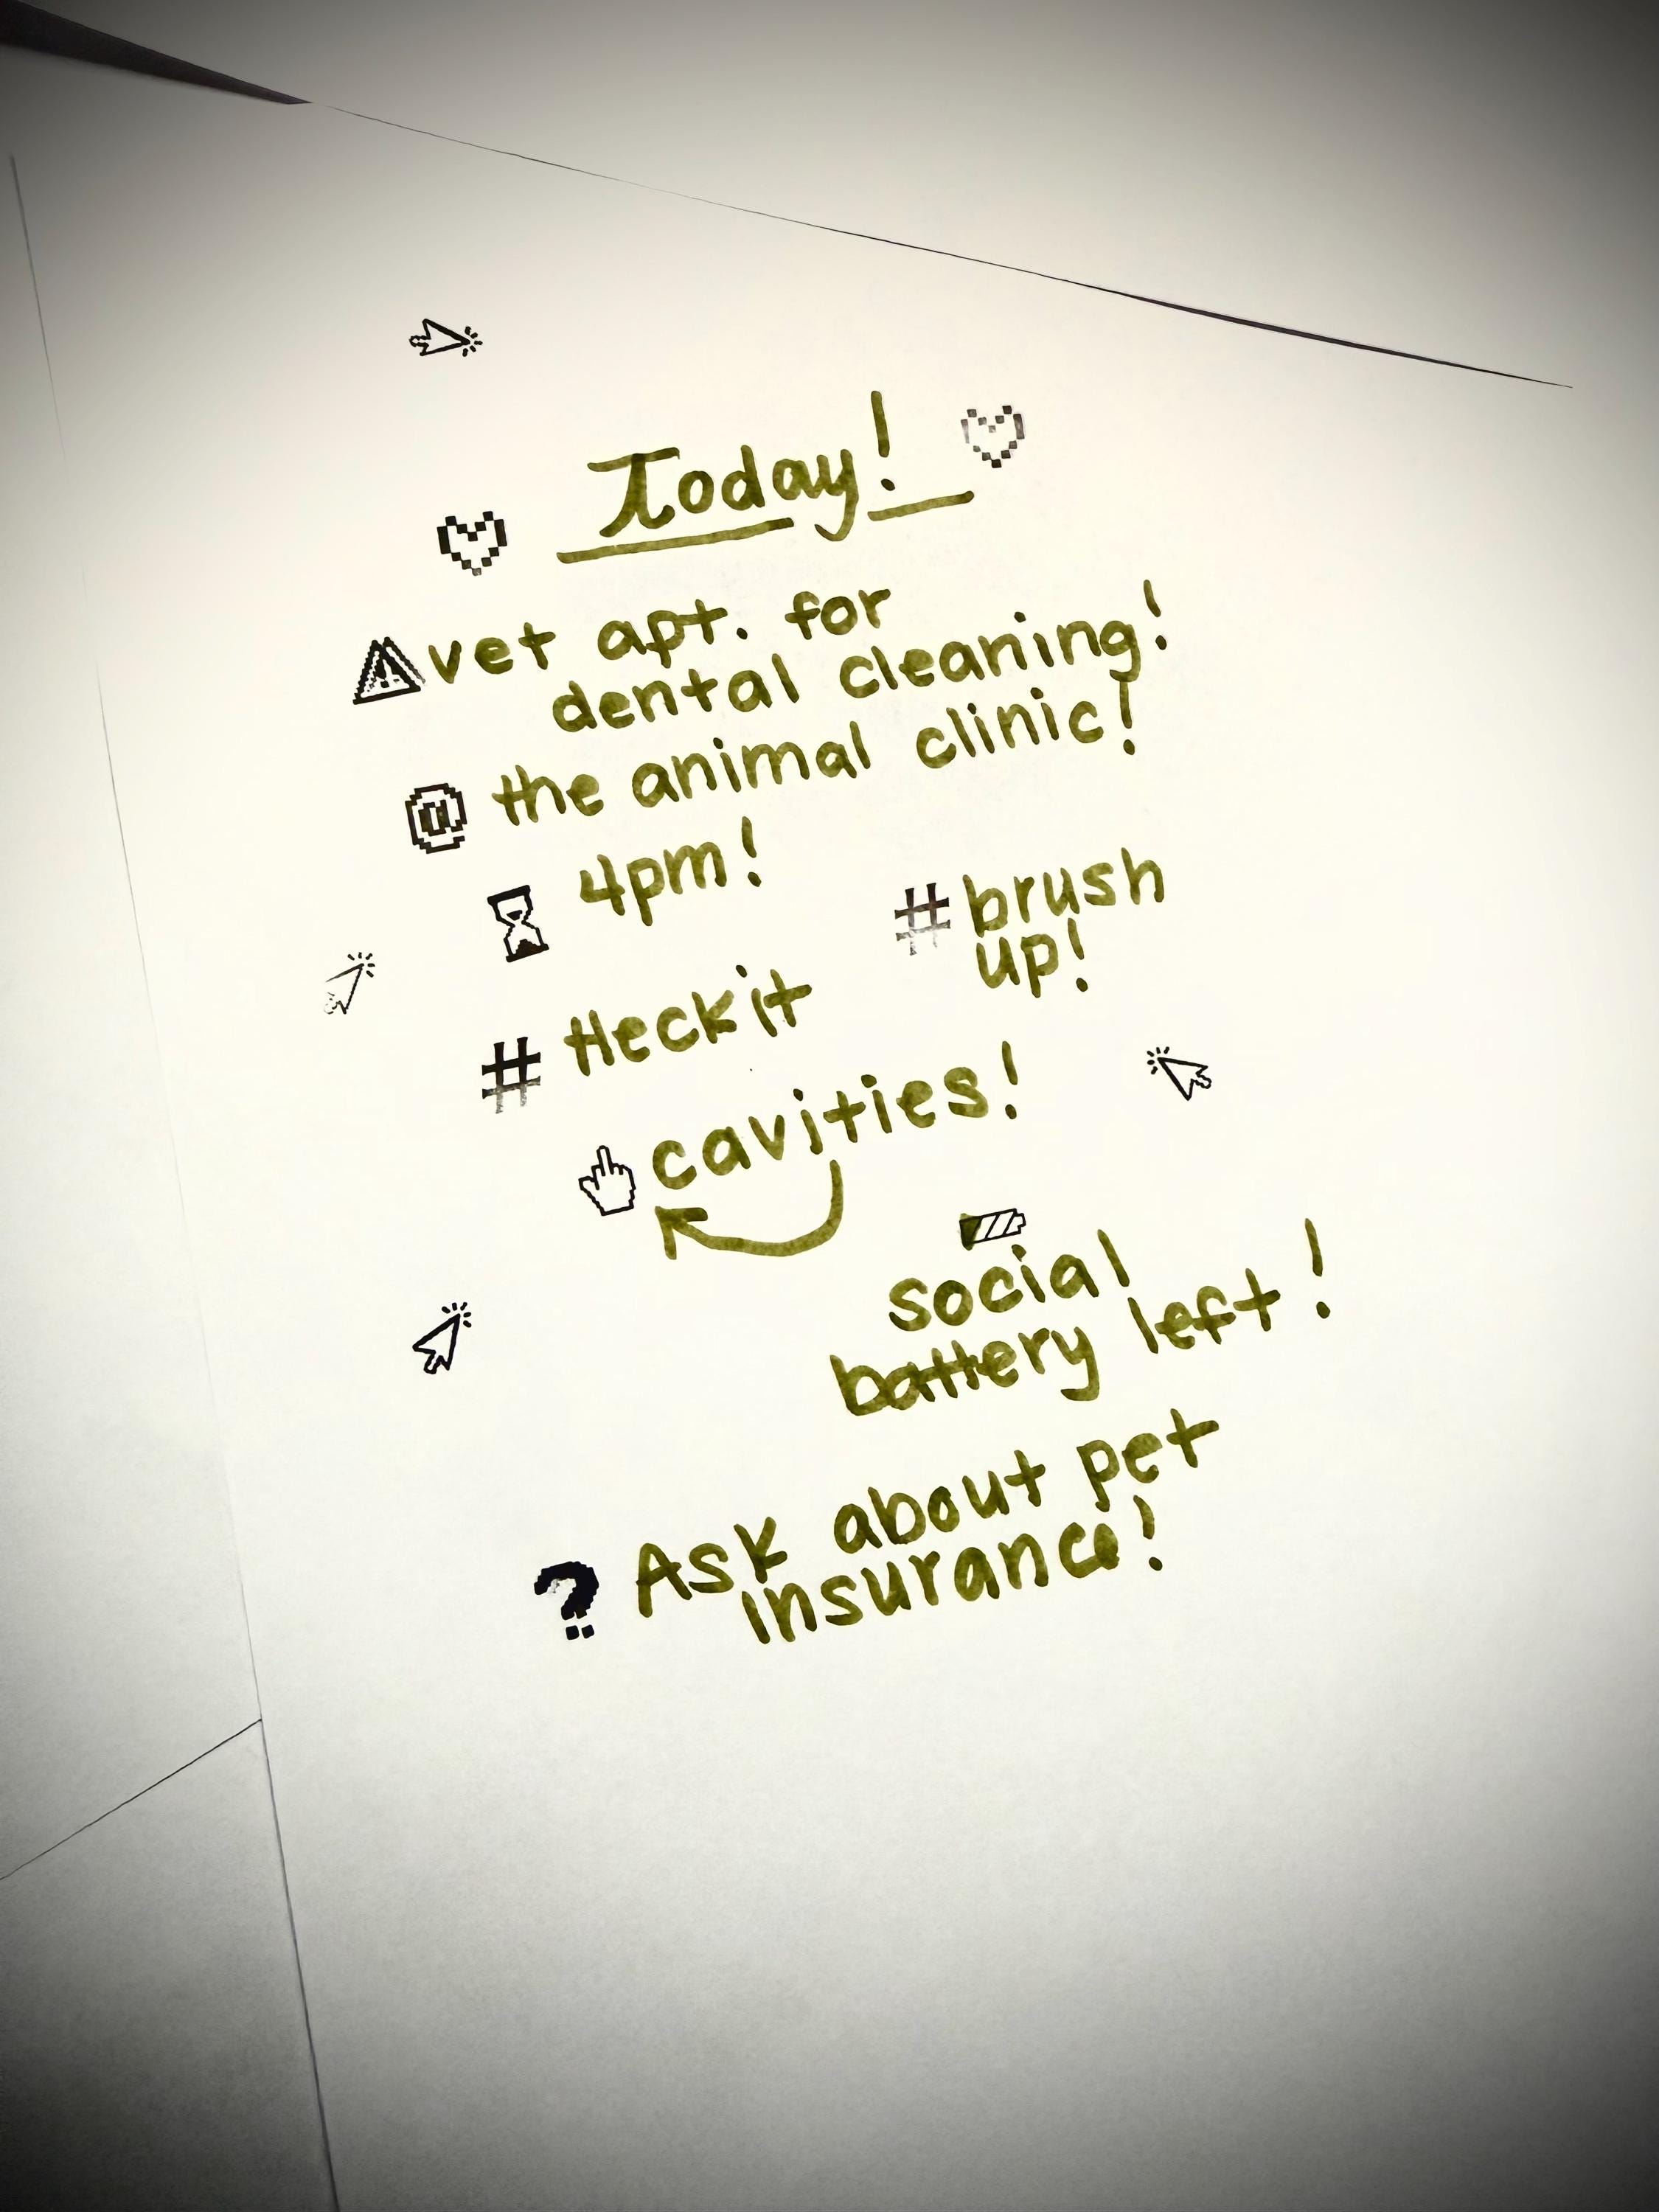 Today!
vet apt. for
dental cleaning!
@ the animal clinic!
4pm!
# brush
up!
# Heck it
cavities!
social
battery left!
? Ask about pet
insurance!